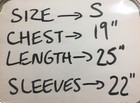 SIZE → S
CHEST → 19"
LENGTH → 25"
SLEEVES → 22"